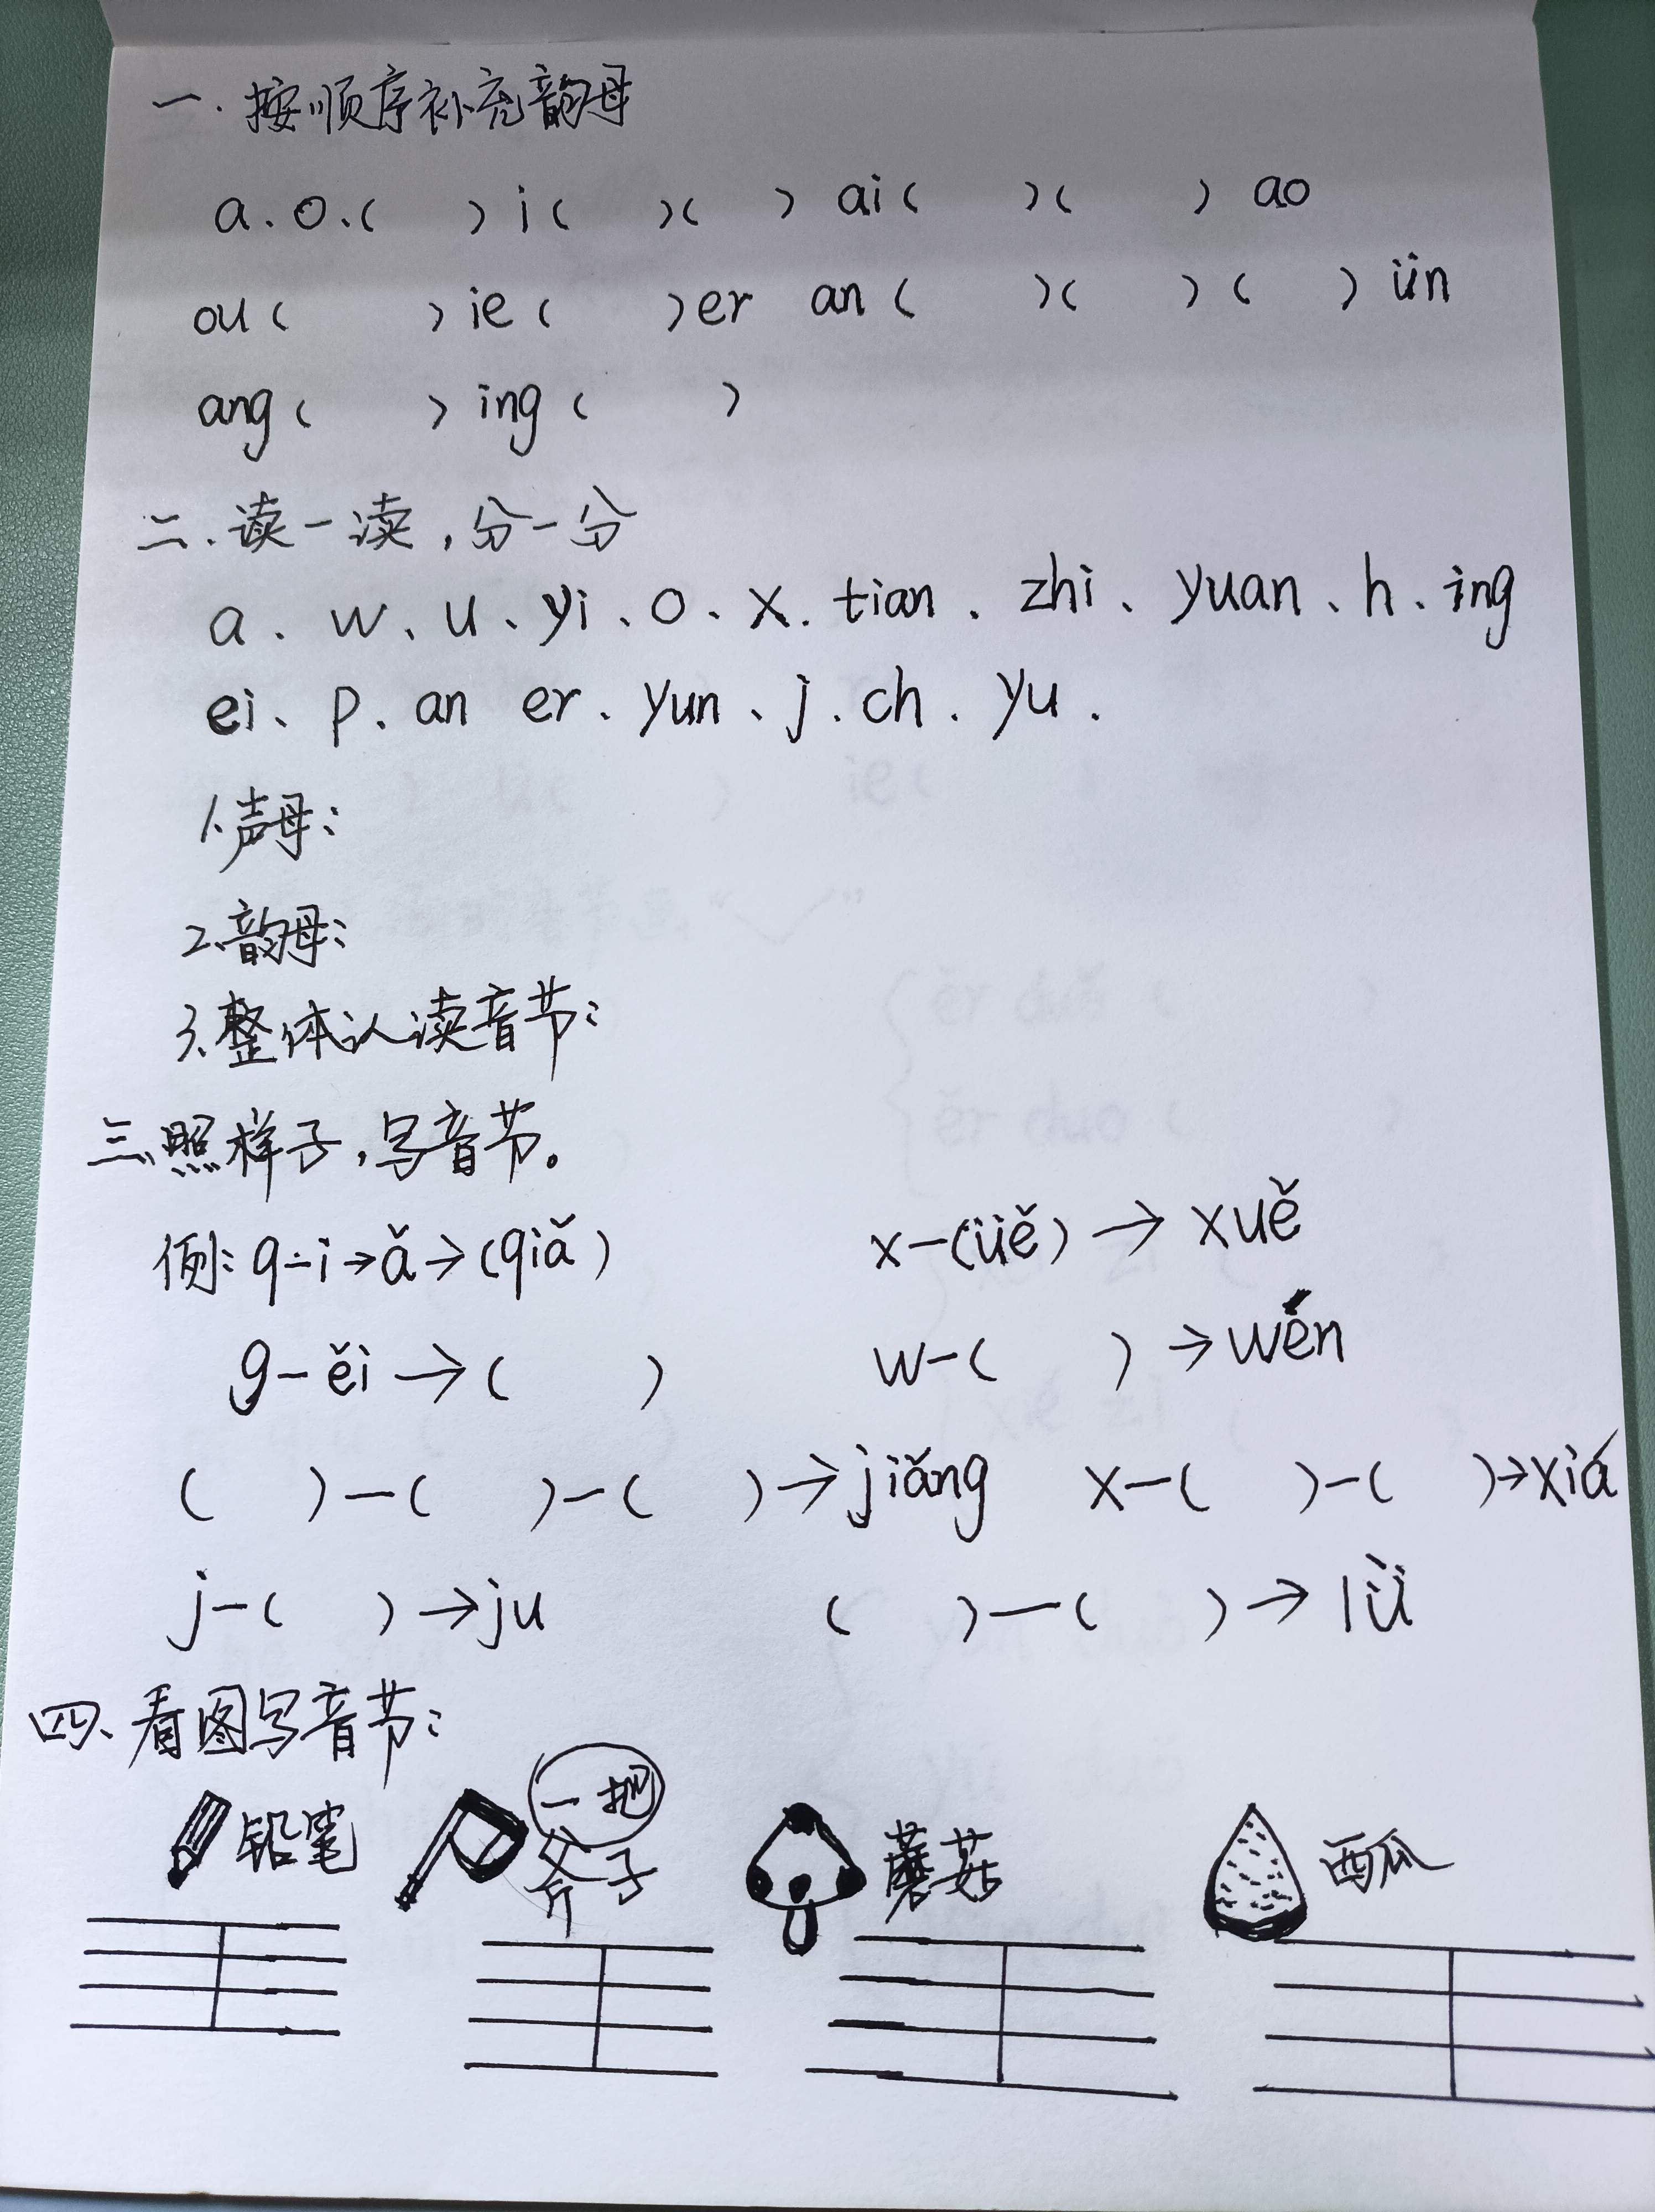 一.按顺序补充韵母
a.o.(　　)i(　　)(　　)ai(　　)(　　)ao
ou(　　)ie(　　)er an(　　)(　　)(　　)ün
ang(　　)ing(　　)
二.读一读,分一分
a、w、u、yi、o、x.tian、zhi、yuan、h.ing
ei、p.an er.yun、j.ch.yu.
1.声母:
2.韵母:
3.整体认读音节:
三.照样子,写音节。
例:q-i→ǎ→(qiǎ) x-(üě)→xuě
g-ěi→(　　) w-(　　)→wén
(　　)-(　　)-(　　)→jiǎng x-(　　)-(　　)→xiá
j-(　　)→ju (　　)-(　　)→lǜ
四、看图写音节:
一把
铅笔 斧子 蘑菇 西瓜